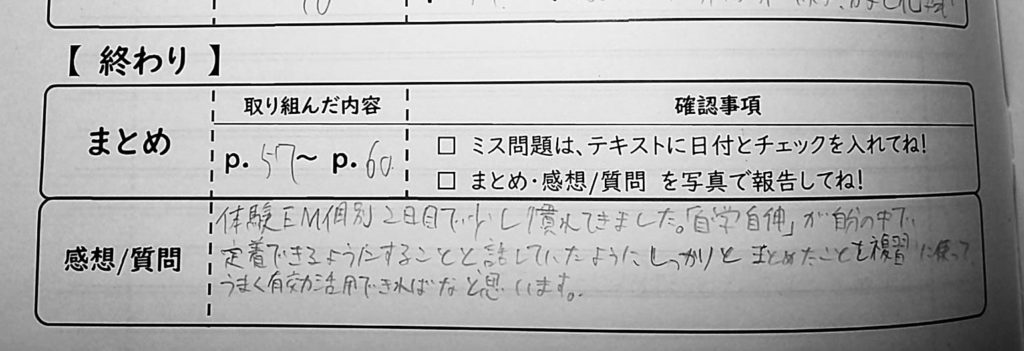 【 終わり 】
まとめ
取り組んだ内容
確認事項
p. 57〜 p. 60
□ ミス問題は、テキストに日付とチェックを入れてね!
□ まとめ・感想/質問 を写真で報告してね!
感想/質問
体験EM個別2日目で少し慣れてきました。「自学自伸」が自分の中で
定着できるようにすることと話していたように、しっかりと まとめたことを複習に使って
うまく有効活用できればなと思います。